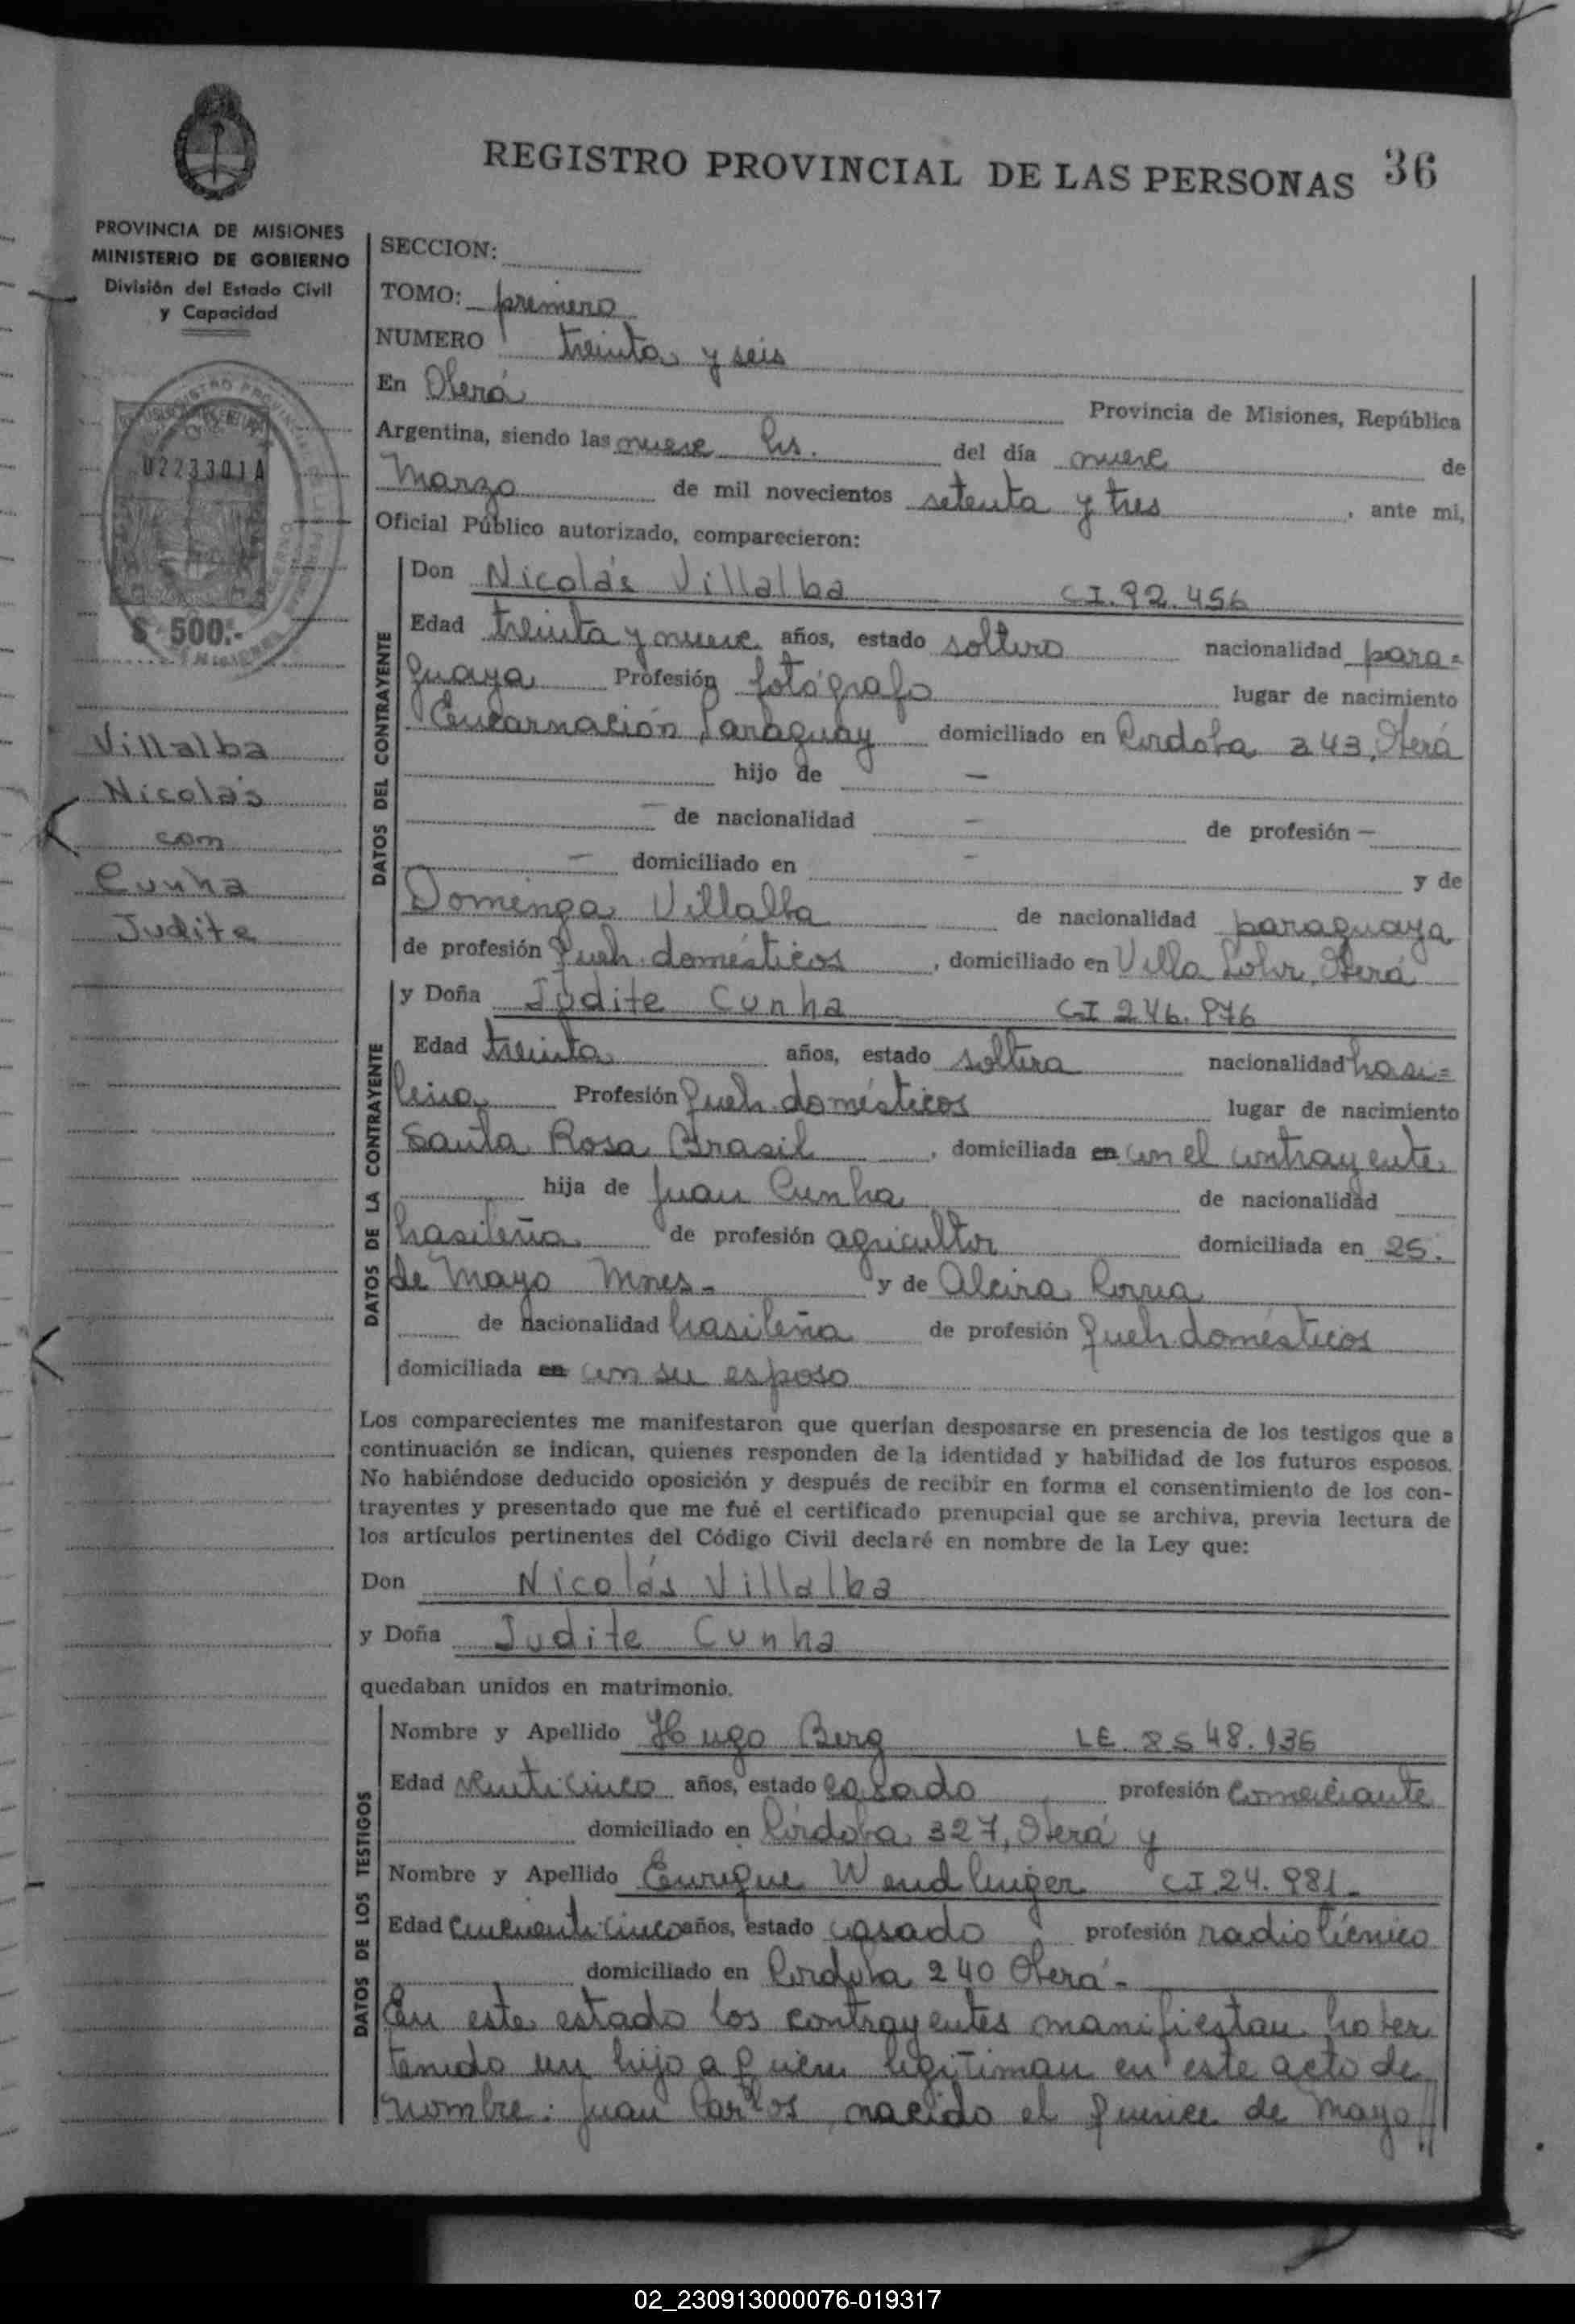 REGISTRO PROVINCIAL DE LAS PERSONAS 36
PROVINCIA DE MISIONES
MINISTERIO DE GOBIERNO
División del Estado Civil
y Capacidad
0223301A
$ 500.-
Villalba
Nicolás
con
Cunha
Judite
SECCION:
TOMO: primero
NUMERO treinta y seis
En Oberá Provincia de Misiones, República
Argentina, siendo las nueve hs. del día nueve de
Marzo de mil novecientos setenta y tres, ante mi,
Oficial Público autorizado, comparecieron:
DATOS DEL CONTRAYENTE
Don Nicolás Villalba CI. 92.456
Edad treinta y nueve años, estado soltero nacionalidad para=
guaya Profesión fotógrafo lugar de nacimiento
Encarnación Paraguay domiciliado en Córdoba 243, Oberá
hijo de —
— de nacionalidad — de profesión —
— domiciliado en — y de
Dominga Villalba de nacionalidad paraguaya
de profesión queh. domésticos, domiciliado en Villa Lohr, Oberá
DATOS DE LA CONTRAYENTE
y Doña Judite Cunha CI 246.976
Edad treinta años, estado soltera nacionalidad brasi=
leña Profesión queh. domésticos lugar de nacimiento
Santa Rosa Brasil, domiciliada en con el contrayente
hija de Juan Cunha de nacionalidad
brasileña de profesión agricultor domiciliada en 25.
de Mayo Mnes- y de Alcira Correa
de nacionalidad brasileña de profesión queh domésticos
domiciliada en con su esposo
Los comparecientes me manifestaron que querían desposarse en presencia de los testigos que a
continuación se indican, quienes responden de la identidad y habilidad de los futuros esposos.
No habiéndose deducido oposición y después de recibir en forma el consentimiento de los con-
trayentes y presentado que me fué el certificado prenupcial que se archiva, previa lectura de
los artículos pertinentes del Código Civil declaré en nombre de la Ley que:
Don Nicolás Villalba
y Doña Judite Cunha
quedaban unidos en matrimonio.
DATOS DE LOS TESTIGOS
Nombre y Apellido Hugo Berg LE. 8548.136
Edad venticinco años, estado casado profesión comerciante
domiciliado en Córdoba 327, Oberá y
Nombre y Apellido Enrique Wendlinger CI.24.981-
Edad cincuenticinco años, estado casado profesión radiotécnico
domiciliado en Córdoba 240 Oberá-
En este estado los contrayentes manifiestan haber
tenido un hijo a quien legitiman en este acto de
nombre: Juan Carlos, nacido el quince de Mayo//
02_230913000076-019317